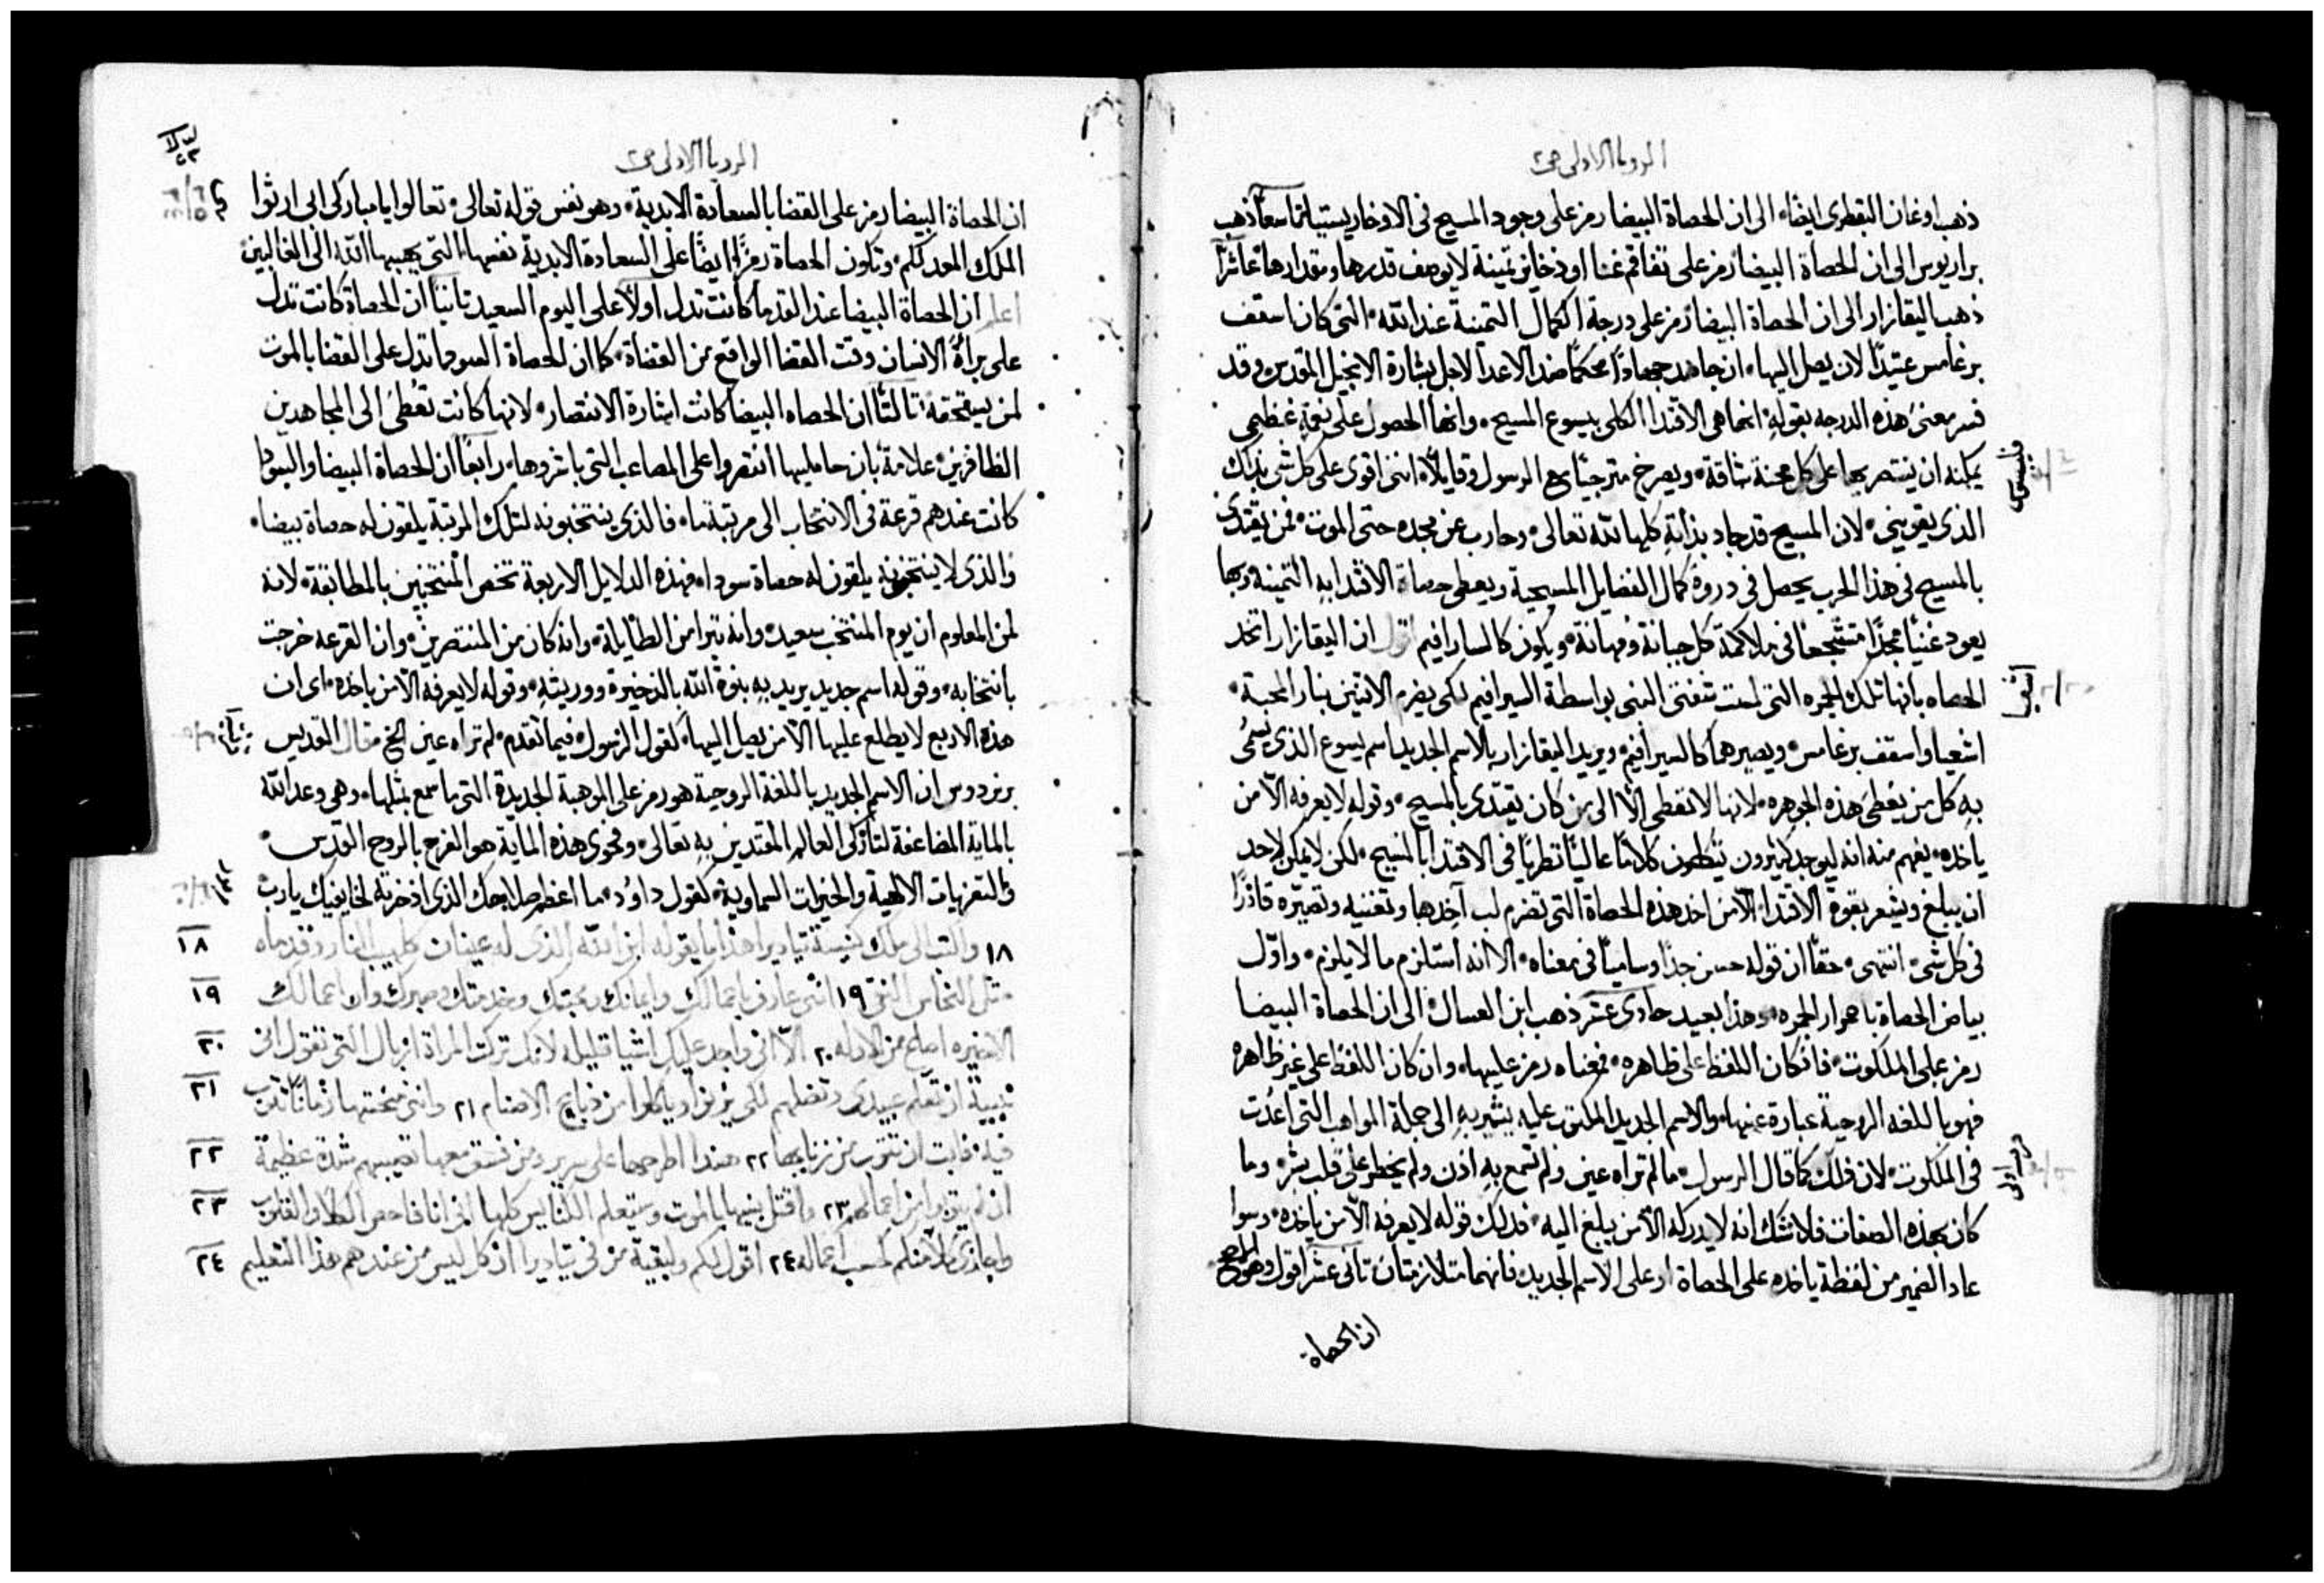 الرويا الاولى ص٢
ذهب اوغان النقطرى ايضًا الى ان الحصاة البيضا رمز على وجود المسيح فى الاوخارستيا تاسعًا ذهب
براريوس الى ان الحصاة البيضا رمز على تفاقم غنا او ذخاير ثمينة لا يوصف قدرها ومقدارها عاشرًا
ذهب اليقازار الى ان الحصاة البيضا رمز على درجة الكمال الثمينة عند الله التى كان اسقف
برغامس عتيدًا لان يصل اليها ان جاهد جهادًا محكمًا ضد الاعدا لاجل بشارة الانجيل المقدس وقد
فسر معنى هذه الدرجه بقوله انما هى الاقتدا الكلى بيسوع المسيح وانها الحصول على قوة عظمى
يمكنه ان ينتصر بها على كل محنة شاقة ويصرخ مترجيًا مع الرسول وقايلًا اننى اقوى على كل شى بذلك
الذى يقوينى لان المسيح قد جاد بذاته كلها لله تعالى وحارب عن مجده حتى الموت فمن يقتدى
بالمسيح فى هذا الحرب يحصل فى دروة كمال الفضايل المسيحية ويعطى حصاة الاقتدا به الثمينة وبها
يعود غنيًا مجدًا متشجعًا فى ملاكمة كل جبانة ومهانة ويكون كالسارافيم اقول ان اليقازار اتخد
الحصاه بانها تلك الجمره التى لمست شفتى النبى بواسطة السيرافيم لكى يضرم الاثنين بنار المحبة
اشعيا واسقف برغامس ويصيرهما كالسيرافيم ويريد اليقازار بالاسم الجديد اسم يسوع الذى يسمى
به كل من يعطى هذه الجوهره لانها لا تعطى الّا الى من كان يقتدى بالمسيح وقوله لا يعرفه الا من
ياخذه يفهم منه انه ليوجد كثيرون ينطقون كلامًا عاليًا نظريًا فى الاقتدا بالمسيح لكن لا يمكن لاحد
ان يبلغ ويشعر بقوة الاقتدا الا من اخد هذه الحصاة التى تضرم لب آخدها وتغنيه وتصيره قادرًا
فى كل شى انتهى حقًا ان قوله حسن جدًا وساميًا فى معناه الا انه استلزم ما لا يلزم واوّل
بياض الحصاة باحمرار الجمره وهذا بعيد حادى عشر ذهب ابن العسال الى ان الحصاة البيضا
رمز على الملكوت فان كان اللفظ على ظاهره فمعناه رمز عليها وان كان اللفظ على غير ظاهره
فهو باللغه الروحية عبارة عنها والاسم الجديد المكتوب عليه يشير به الى جملة المواهب التى اعدت
فى الملكوت لان ذلك كما قال الرسول ما لم تراه عين ولم تسمع به اذن ولم يخطر على قلب بشر وما
كان بهذه الصفات فلا شك انه لا يدركه الا من يبلغ اليه فدلك قوله لا يعرفه الا من ياخده وسوا
عاد الضمير من لفظة ياخده على الحصاة او على الاسم الجديد فانهما متلازمتان ثانى عشر اقول وهو الاصح
ان الحصاة
الرويا الاولى ص٢
ان الحصاة البيضا رمز على القضا بالسعادة الابدية وهو نفس قوله تعالى تعالوا يا مباركى ابى ارثوا
الملك المعد لكم وتكون الحصاة رمزًا ايضًا على السعادة الابدية نفسها التى يهبها الله الى الغالبين
اعلم ان الحصاة البيضا عند القدما كانت تدل اولًا على اليوم السعيد ثانيًا ان الحصاة كانت تدل
على براة الانسان وقت القضا الواقع من القضاة كما ان الحصاة السودا تدل على القضا بالموت
لمن يستحقه ثالثًا ان الحصاه البيضا كانت اشارة الانتصار لانها كانت تعطى الى المجاهدين
الظافرين علامة بان حامليها انتصروا على المصاعب التى باشروها رابعًا ان الحصاة البيضا والسودا
كانت عندهم قرعة فى الانتخاب الى مرتبة ما فالذى ينتخبونه لتلك المرتبة يلقون له حصاة بيضا
والذى لا ينتخبونه يلقون له حصاة سودا فهذه الدلايل الاربعة تخص المنتخبين بالمطابقة لانه
لمن المعلوم ان يوم المنتخب سعيد وانه تبرا من الطايلة وانه كان من المنتصرين وان القرعه خرجت
بانتخابه وقوله اسم جديد يريد به بنوة الله بالذخيرة ووريثه وقوله لا يعرفه الا من ياخذه اى ان
هذه الاربع لا يطلع عليها الا من يصل اليها كقول الرسول فيما تقدم لم تراه عين الخ وقال القديس
برنردوس ان الاسم الجديد باللغة الروحية هو رمز على الوهبة الجديدة التى ما سمع بمثلها وهى وعد الله
بالماية المضاعفة لتاركى العالم المقتدين به تعالى وفحوى هذه الماية هو الفرح بالروح القدس
والتعزيات الالهية والخيرات السماوية كقول داود ما اعظم صلاحك الذى اذخرته لخايفيك يا رب
١٨ واكتب الى ملك كنيسة تياديرا هذا ما يقوله ابن الله الذى له عينان كلهيب النار وقدماه ١٨
مثل النحاس النقى ١٩ اننى عارف باعمالك وايمانك ومحبتك وخدمتك وصبرك وان اعمالك ١٩
الاخيره اصلح من الاوله ٢٠ الا انى واجد عليك اشيا قليله لانك تركت المراة ازبال التى تقول انى ٢٠
نبيية ان تعلم عبيدى وتضلهم لكى يزنوا وياكلوا من ذبايح الاصنام ٢١ واننى منحتها زمانًا تتوب ٢١
فيه فابت ان تتوب من زنايها ٢٢ هندا اطرحها على سرير ومن فسق معها تصيبهم شدة عظيمة ٢٢
ان لم يتوبوا من اعمالهم ٢٣ واقتل بنيها بالموت وستعلم الكنايس كلها انى انا فاحص الكلا والقلوب ٢٣
واجازى كلًا منكم كحسب اعماله ٢٤ اقول لكم ولبقية من فى تياديرا ان كل ليس من عندهم هذا التعليم ٢٤